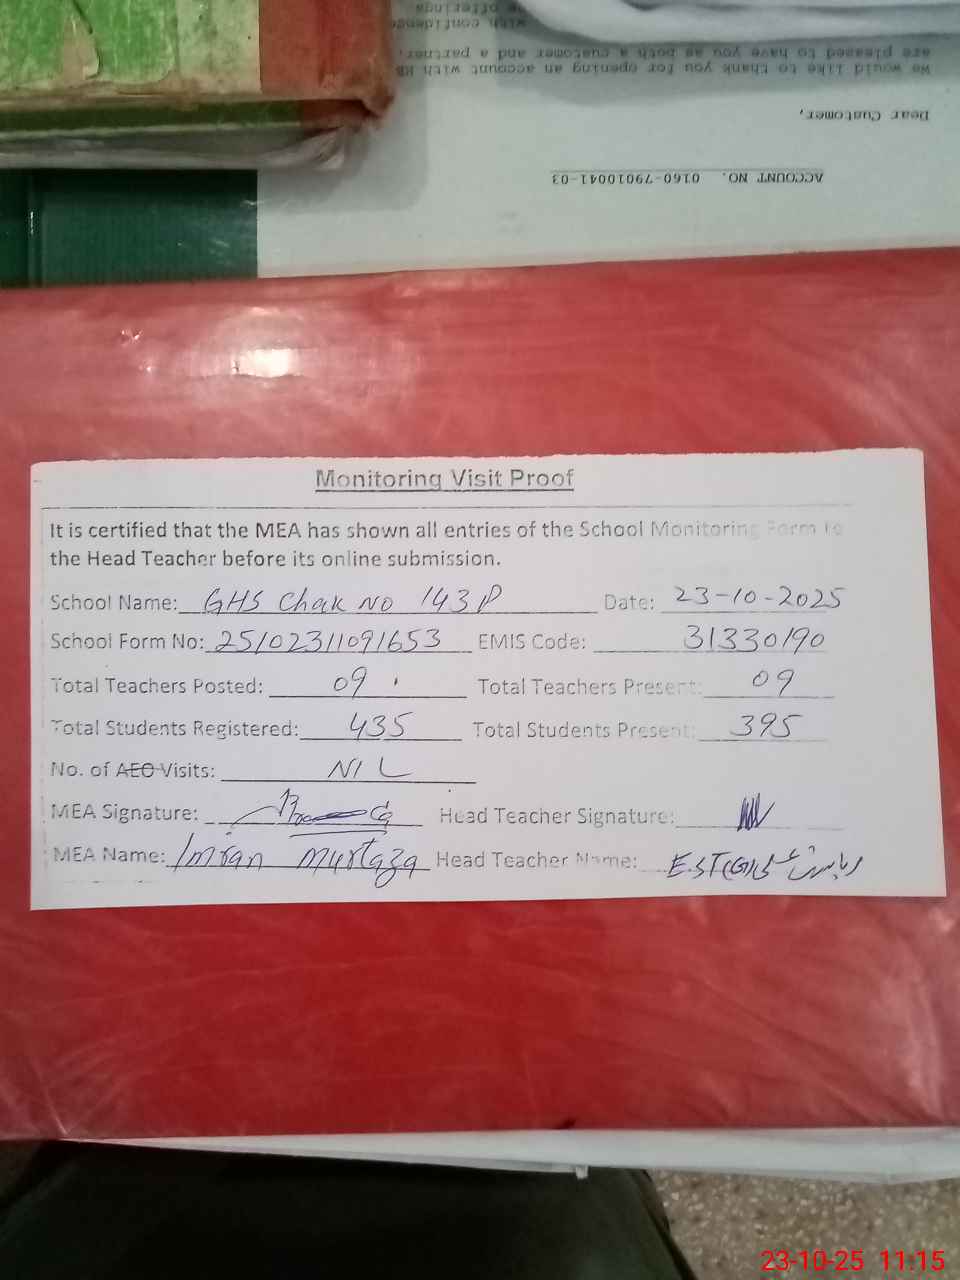 e offerings
with confidence
are pleased to have you as both a customer and a partner.
We would like to thank you for opening an account with HB
Dear Customer,
ACCOUNT NO. 0160-79010041-03
Monitoring Visit Proof
It is certified that the MEA has shown all entries of the School Monitoring Form to
the Head Teacher before its online submission.
School Name: GHS Chak No 143P Date: 23-10-2025
School Form No: 25102311091653 EMIS Code: 31330190
Total Teachers Posted: 09 Total Teachers Present: 09
Total Students Registered: 435 Total Students Present: 395
No. of AEO Visits: NIL
MEA Signature: Head Teacher Signature:
MEA Name: Imran Murtaza Head Teacher Name: EST
23-10-25 11:15